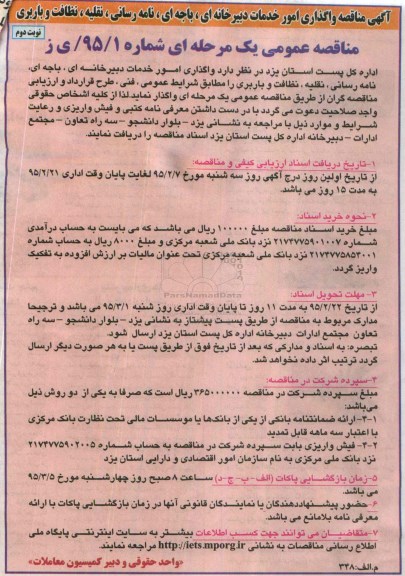 آگهی مناقصه واگذاری امور خدمات دبیرخانه ای، باجه ای، نامه رسانی، نقلیه، نظافت و باربری
نوبت دوم
مناقصه عمومی یک مرحله ای شماره ۹۵/۱/ ی ز
اداره کل پست استان یزد در نظر دارد واگذاری امور خدمات دبیرخانه ای، باجه ای،
نامه رسانی، نقلیه، نظافت و باربری را مطابق شرایط عمومی، فنی، طرح قرارداد و ارزیابی
مناقصه گران از طریق مناقصه عمومی یک مرحله ای واگذار نماید. لذا از کلیه اشخاص حقوقی
واجد صلاحیت دعوت می گردد با در دست داشتن معرفی نامه کتبی و فیش واریزی و رعایت
شرایط و موارد ذیل با مراجعه به نشانی یزد - بلوار دانشجو - سه راه تعاون - مجتمع
ادارات - دبیرخانه اداره کل پست استان یزد اسناد مناقصه را دریافت نمایند.
۱- تاریخ دریافت اسناد ارزیابی کیفی و مناقصه:
از تاریخ اولین روز درج آگهی روز سه شنبه مورخ ۹۵/۲/۷ لغایت پایان وقت اداری ۹۵/۲/۲۱
به مدت ۱۵ روز می باشد.
۲- نحوه خرید اسناد:
مبلغ خرید اسناد مناقصه مبلغ ۱۰۰۰۰۰ ریال می باشد که می بایست به حساب درآمدی
شماره ۲۱۷۴۷۷۵۹۰۱۰۰۷ نزد بانک ملی شعبه مرکزی و مبلغ ۸۰۰۰ ریال به حساب شماره
۲۱۷۴۷۷۵۸۵۳۰۰۱ نزد بانک ملی شعبه مرکزی تحت عنوان مالیات بر ارزش افزوده به تفکیک
واریز گردد.
ParsNamadData
۳- مهلت تحویل اسناد:
از تاریخ ۹۵/۲/۲۲ به مدت ۱۱ روز تا پایان وقت اداری روز شنبه ۹۵/۳/۱ می باشد و ترجیحا
مدارک مربوط به مناقصه از طریق پست پیشتاز به نشانی یزد - بلوار دانشجو - سه راه
تعاون مجتمع ادارات دبیرخانه اداره کل پست استان یزد ارسال شود.
تبصره: به اسناد و مدارکی که بعد از تاریخ فوق از طریق پست یا به هر صورت دیگر ارسال
گردد ترتیب اثر داده نخواهد شد.
۴- سپرده شرکت در مناقصه:
مبلغ سپرده شرکت در مناقصه ۳۶۵۰۰۰۰۰۰ ریال است که صرفا به یکی از دو روش ذیل
می باشد:
۳-۱- ارائه ضمانتنامه بانکی از یکی از بانک ها یا موسسات مالی تحت نظارت بانک مرکزی
با اعتبار سه ماهه قابل تمدید
۳-۲- فیش واریزی بابت سپرده شرکت در مناقصه به حساب شماره ۲۱۷۴۷۷۵۹۰۲۰۰۵
نزد بانک ملی مرکزی به نام سازمان امور اقتصادی و دارایی استان یزد
۵- زمان بازگشایی پاکات (الف-ب-ج-د) ساعت ۸ صبح روز چهارشنبه مورخ ۹۵/۳/۵
می باشد.
۶- حضور پیشنهاددهندگان یا نمایندگان قانونی آنها در زمان بازگشایی پاکات با ارائه
معرفی نامه بلامانع می باشد.
۷- متقاضیان می توانند جهت کسب اطلاعات بیشتر به سایت اینترنتی پایگاه ملی
اطلاع رسانی مناقصات به نشانی http://iets.mporg.ir مراجعه نمایند.
م.الف: ۳۴۸
«واحد حقوقی و دبیر کمیسیون معاملات»